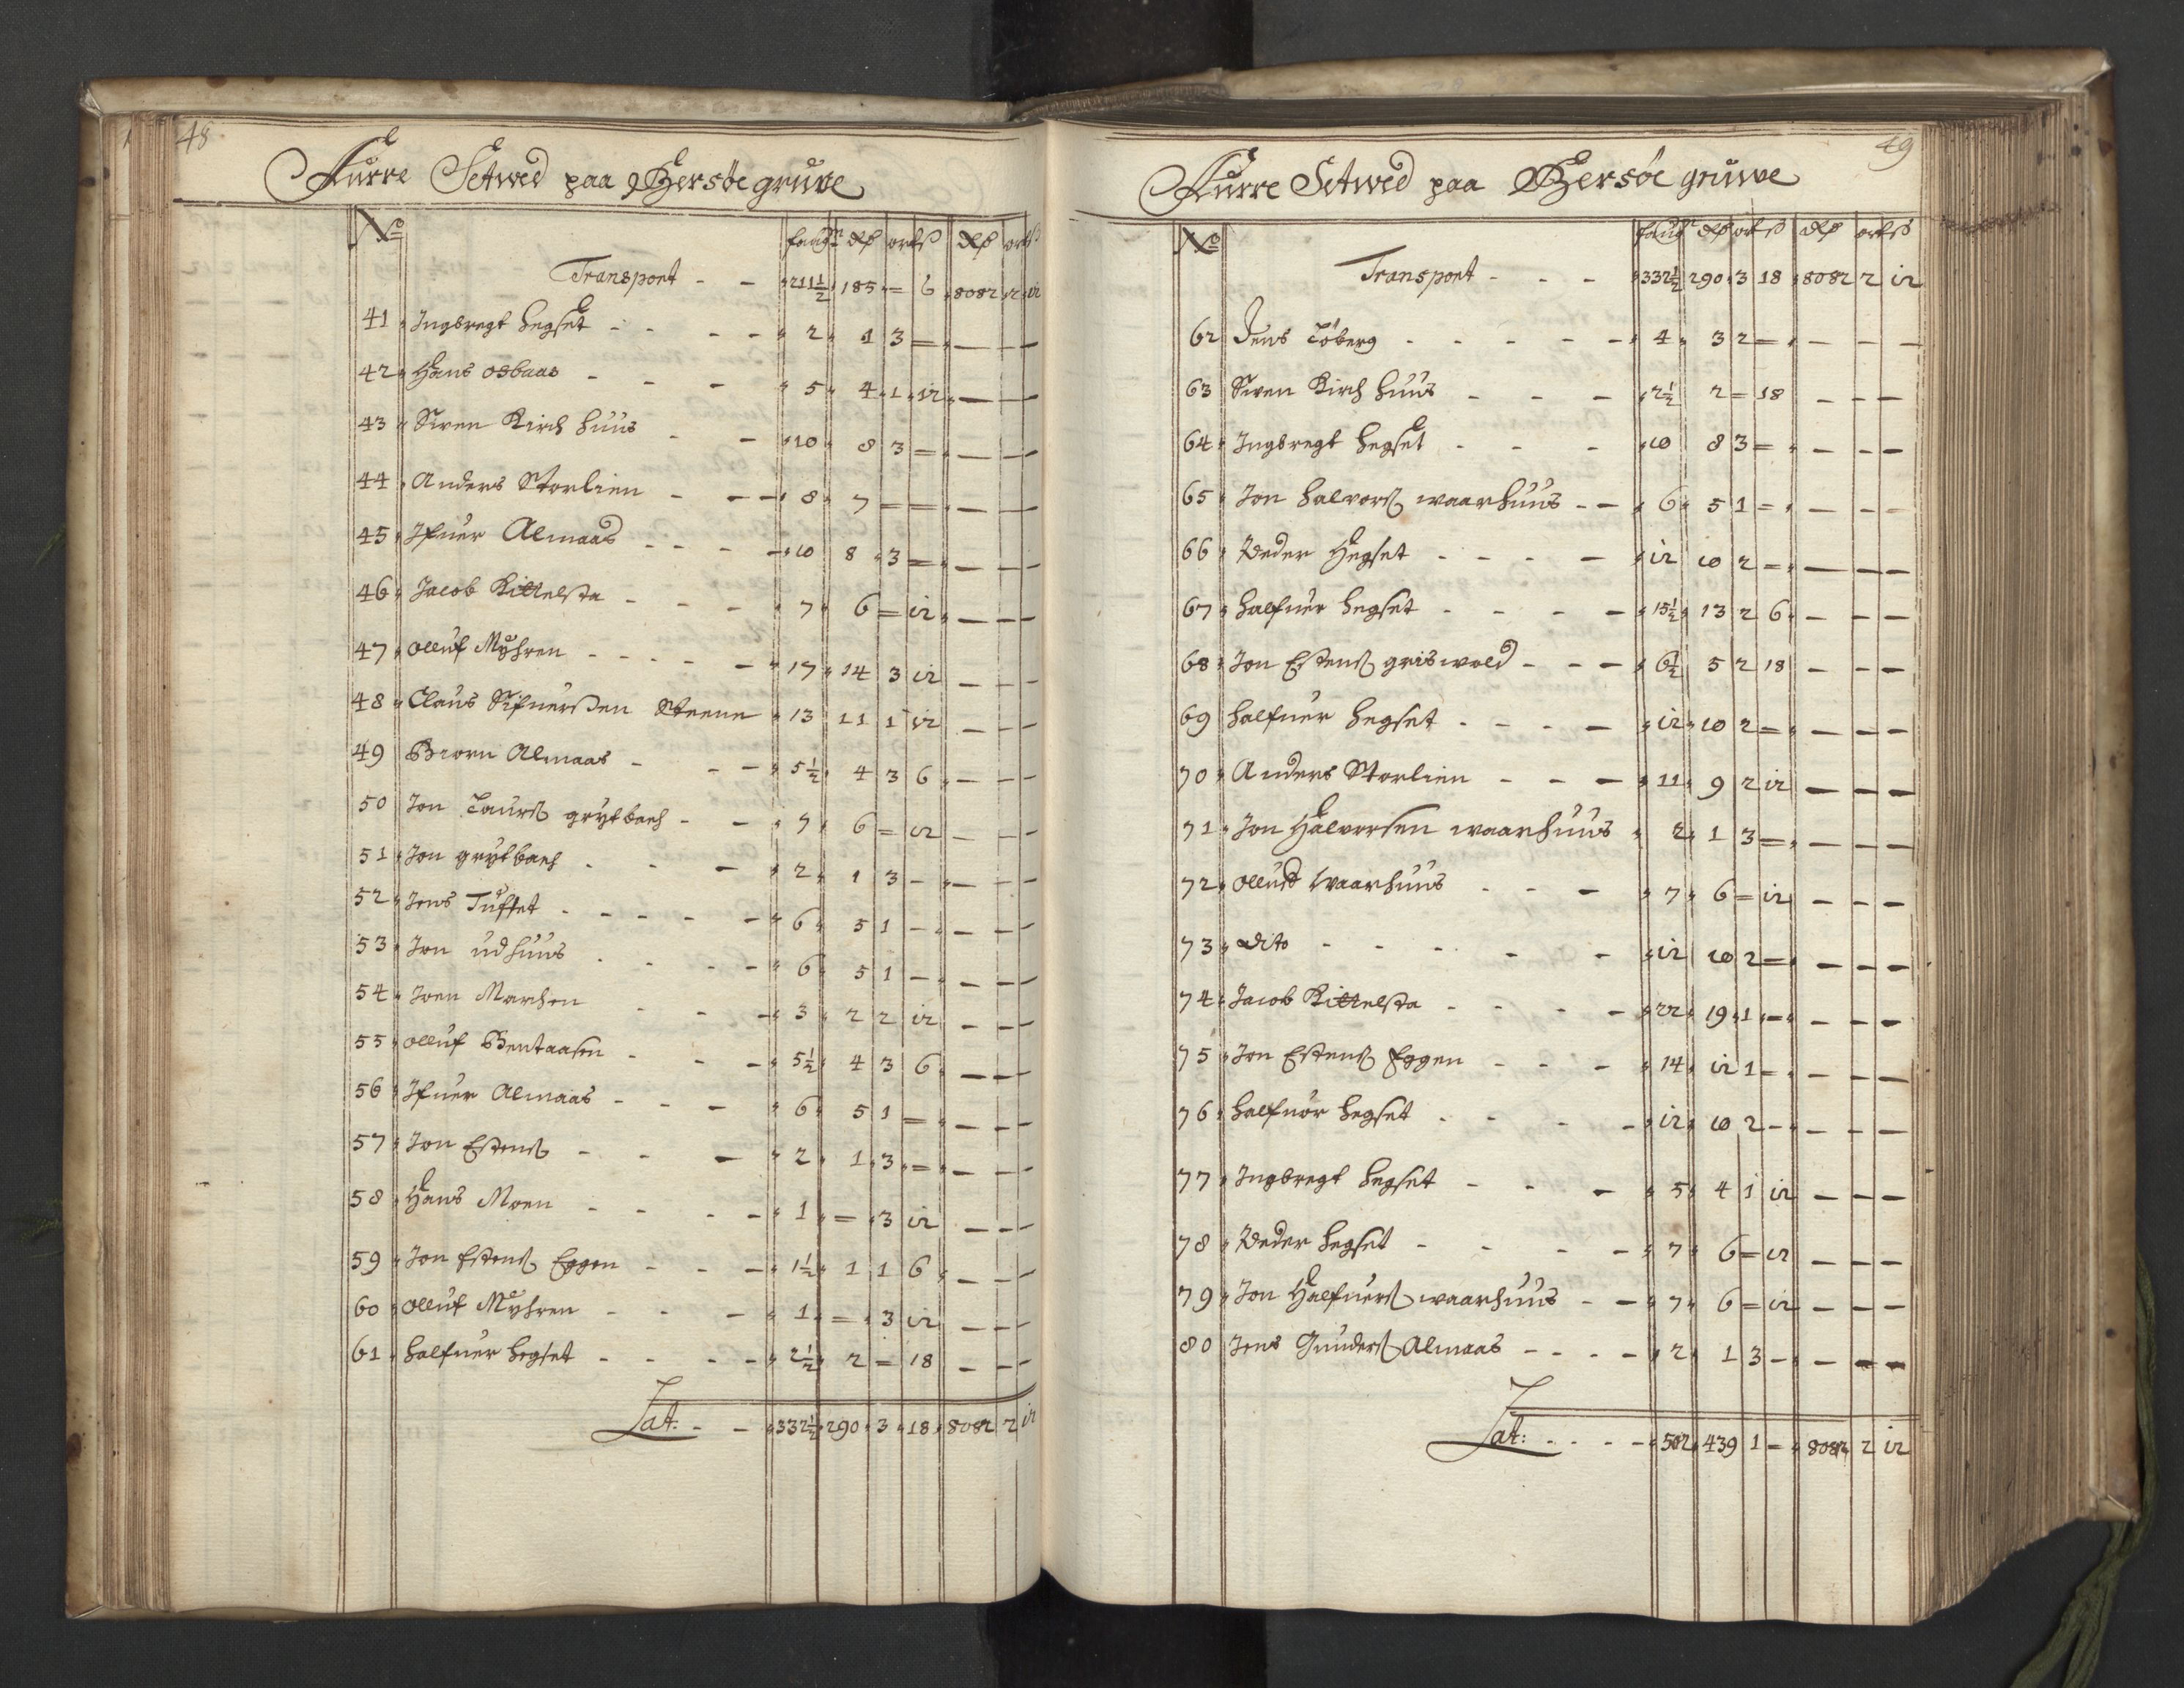 48
Furre Setwed paa Hersöe gruwe
No favgr dlr ort ß dlr ort ß
Transport - - 211½ 185 = 6 8082 2 12
41 Ingbregt Hegset - - - - 2 1 3 = — — —
42 Hans Osbaas - - - 5 4 1 12 — — —
43 Siwen Kirch huus - - 10 8 3 = — — —
44 Anders Storlien - - - 8 7 = = — — —
45 Ifuer Almaas - - - - 10 8 3 = — — —
46 Jacob Kittelsta - - - 7 6 = 12 — — —
47 Olluf Myhren - - - - - 17 14 3 12 — — —
48 Claus Sifuerßen Steene 13 11 1 12 — — —
49 Biorn Almaas - - - 5½ 4 3 6 — — —
50 Jon Laurß grytbach - - 7 6 = 12 — — —
51 Jon grytbach - - - 2 1 3 – — — —
52 Jens Tuffet - - - - - 6 5 1 – — — —
53 Jon udhuus - - - - 6 5 1 – — — —
54 Joen Marchen - - - 3 2 2 12 — — —
55 Olluf Bentaasen - - - 5½ 4 3 6 — — —
56 Ifuer Almaas - - - 6 5 1 = — — —
57 Jon Estenß - - - 2 1 3 = — — —
58 Hans Moen - - - - 1 = 3 12 — — —
59 Jon Estenß Eggen - - - 1½ 1 1 6 — — —
60 Olluf Myhren - - - 1 = 3 12 — — —
61 Halfuer Hegset - - - - 2½ 2 = 18 — — —
Lat: - - 332½ 290 3 18 8082 2 12
49
Furre Setwed paa Hersöe gruwe
No favgr dlr ort ß dlr ort ß
Transport - - - 332½ 290 3 18 8082 2 12
62 Jens Löberg - - - - - 4 3 2 = — — —
63 Siwen Kirch huus - - - 2½ 2 = 18 — — —
64 Ingbregt Hegset - - - 10 8 3 = — — —
65 Jon Halvorß waarhuus - - 6 5 1 = — — —
66 Peder Hegset - - - - 12 10 2 = — — —
67 Halfuer Hegset - - - - 15½ 13 2 6 — — —
68 Jon Estenß griswold - - - 6½ 5 2 18 — — —
69 Halfuer Hegset - - - - 12 10 2 = — — —
70 Anders Storlien - - - 11 9 2 12 — — —
71 Jon Halvorsen waarhuus 2 1 3 = — — —
72 Olluf Waarhuus - - - 7 6 = 12 — — —
73 dito - - - - - 12 10 2 = — — —
74 Jacob Kittelsta - - - - 22 19 1 – — — —
75 Jon Estenß Eggen - - - 14 12 1 – — — —
76 Halfuor Hegset - - - - 12 10 2 – — — —
77 Ingbregt Hegset - - - 5 4 1 12 — — —
78 Peder Hegset - - - - 7 6 = 12 — — —
79 Jon Halfuerß waarhuus - - 7 6 = 12 — — —
80 Jens Gunderß Almaas - - - - 2 1 3 – — — —
Lat: - - - - 502 439 1 – 8082 2 12